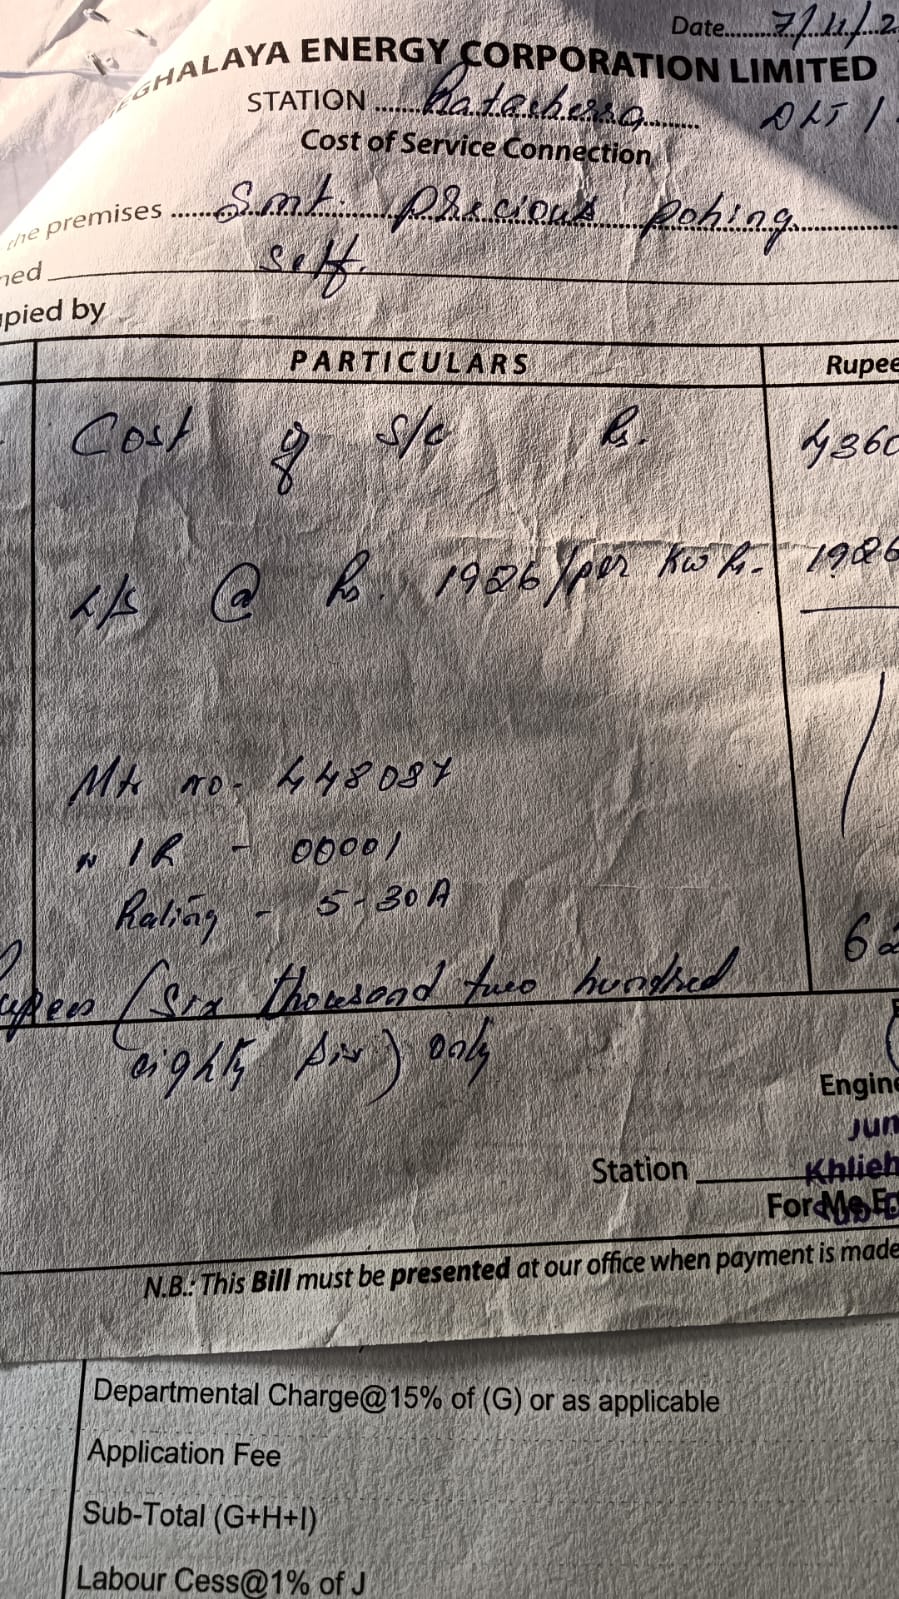 Date........7/11/2
GHALAYA ENERGY CORPORATION LIMITED
STATION ........Ratacherra.........
DLT 1
Cost of Service Connection
the premises ........Smt. Precious Pohing
ned self.
upied by
PARTICULARS Rupee
Cost of S/c Rs. 4360
L/S @ Rs. 1926/per KW Rs. 1926
Mtr no. 448087
" IR - 00001
Rating - 5-30A
62
upees (Six thousand two hundred
eighty six) only
Engine
Jun
Station Khlieh
For Me.E
N.B.: This Bill must be presented at our office when payment is made
Departmental Charge@15% of (G) or as applicable
Application Fee
Sub-Total (G+H+I)
Labour Cess@1% of J